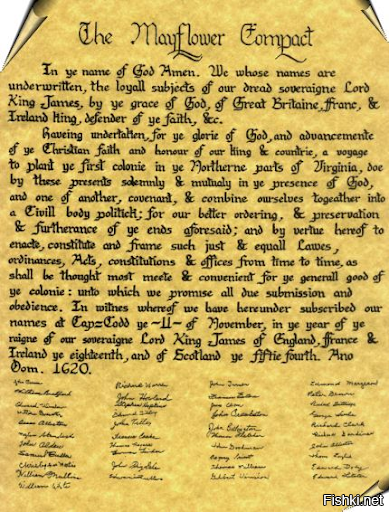 The Mayflower Compact
In ye name of God Amen. We whose names are
underwritten, the loyall subjects of our dread soveraigne Lord
King James, by ye grace of God, of Great Britaine, ffranc, &
Ireland King, defender of ye faith, &c.
Haveing undertaken, for ye glorie of God, and advancemente
of ye Christian faith and honour of our king & countrie, a voyage
to plant ye first colonie in ye Northerne parts of Virginia, doe
by these presents solemnly & mutualy in ye presence of God,
and one of another, covenant, & combine ourselves togeather into
a Civill body politick; for our better ordering, & preservation
& furtherance of ye ends aforesaid; and by vertue hereof to
enacte, constitute and frame such just & equall Lawes,
ordinances, Acts, constitutions & offices from time to time, as
shall be thought most meete & convenient for ye generall good of
ye colonie: unto which we promise all due submission and
obedience. In witnes whereof we have hereunder subscribed our
names at Cap=Codd ye ~11~ of November, in ye year of ye
raigne of our soveraigne Lord King James of England, ffrance &
Ireland ye eighteenth, and of Scotland ye fiftie fourth. Ano
Dom. 1620.
John Turner
William Bradford John Howland Francis Eaton Peter Brown
Edward Tilley John Crackston
Isaac Allerton John Tilley Edward Clark
John Alden John Goodman
Samuel Fuller Thomas Tinker
Thomas Williams Edward Doty
William Mullins Edward Leister
William White
Fishki.net